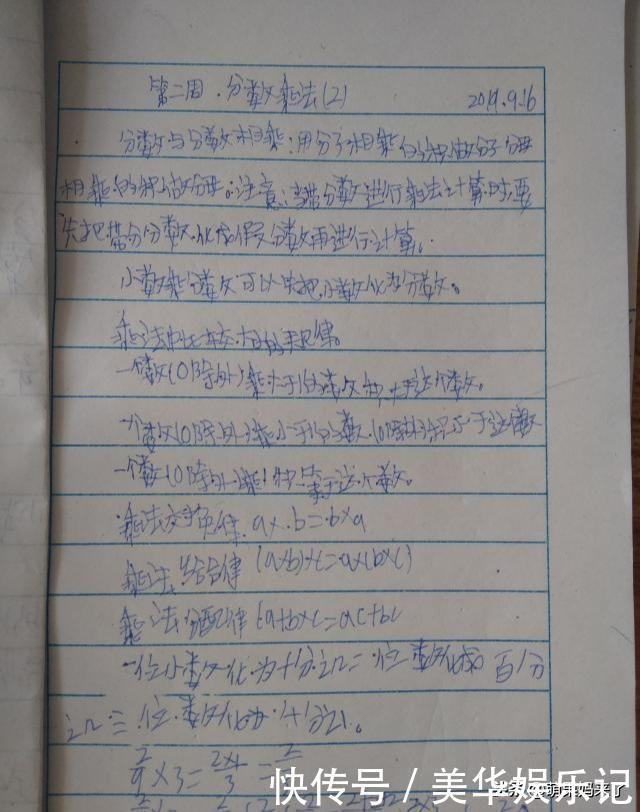 第二周.分数乘法(2) 2019.9.16
分数与分数相乘:用分子相乘的积做分子分母
相乘的积做分母。注意:当带分数进行乘法计算时,要
先把带分数化成假分数再进行计算。
小数乘分数可以先把小数化为分数。
乘法中比较大小的规律。
一个数(0除外)乘大于1的数,积大于这个数。
一个数(0除外)乘小于1的数(0除外)积小于这个数
一个数(0除外)乘1积等于这个数。
乘法交换律.a×b=b×a
乘法结合律(a×b)×c=a×(b×c)
乘法分配律(a+b)×c=ac+bc
一位小数化为十分之几二位数化成百分
之几三位数化为千分之几。
2/9×3=
快传号/美华娱乐记
萌果妈来了